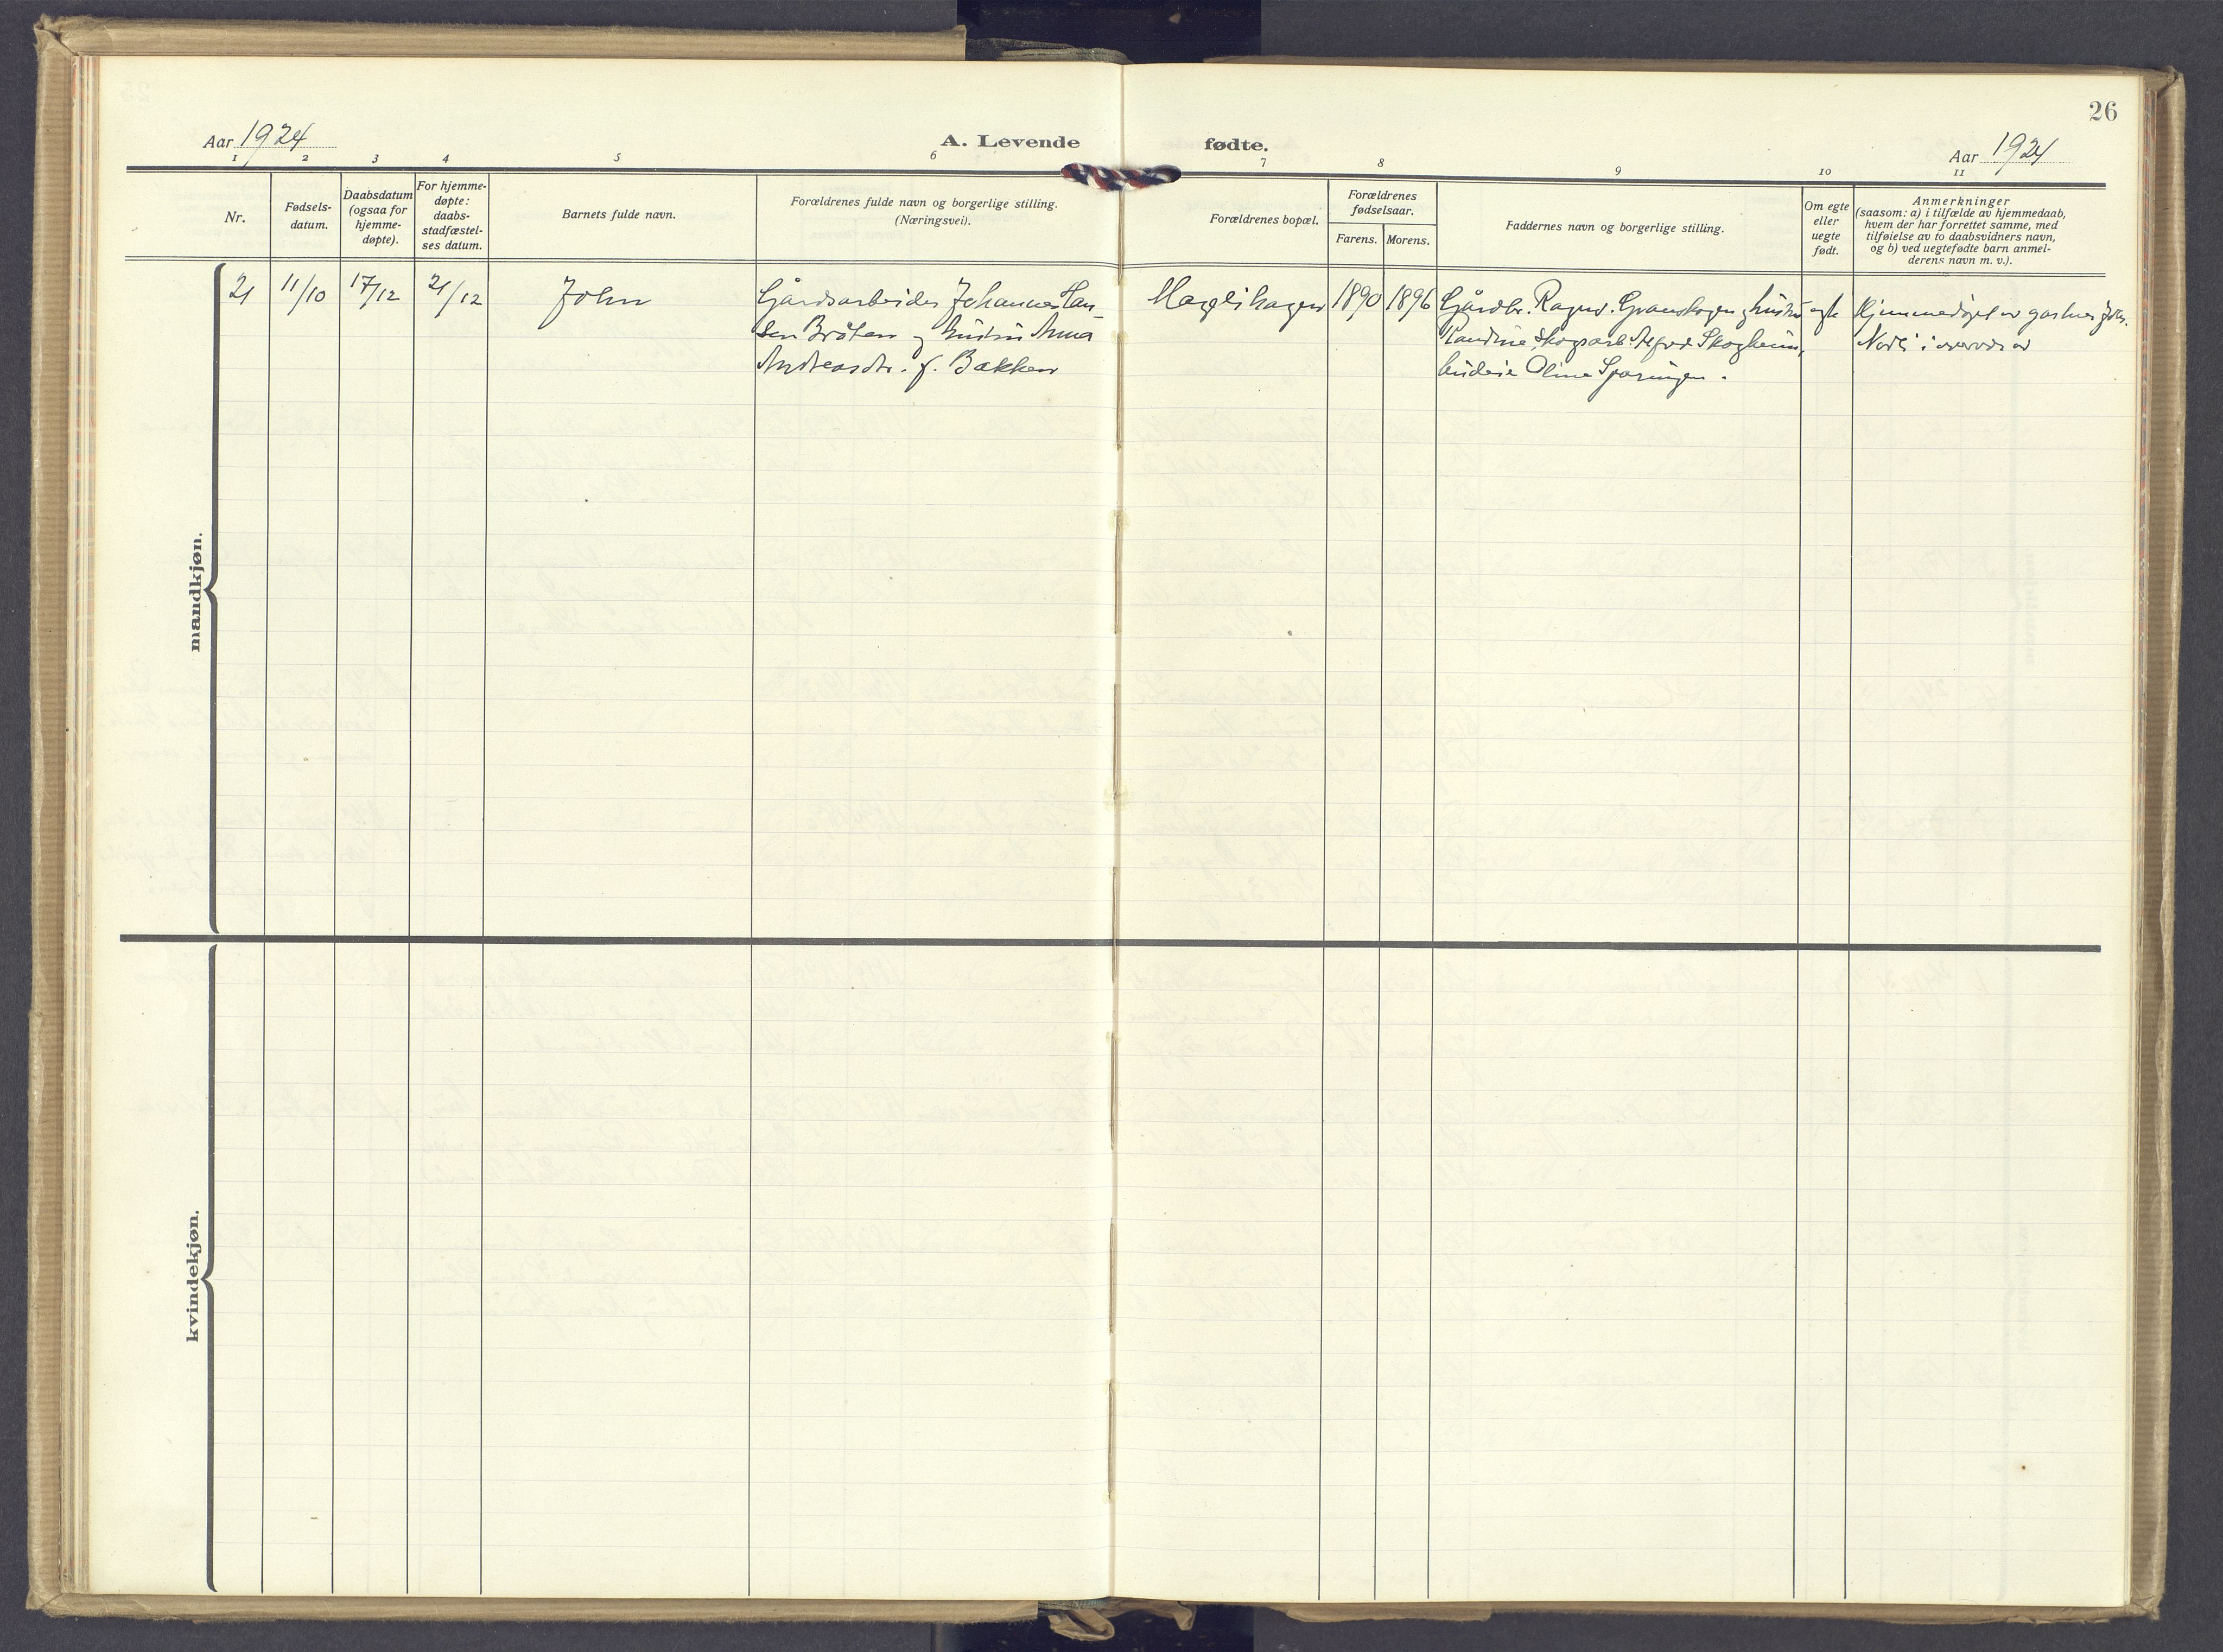 26
Aar 1924
A. Levende fødte.
Aar 1924
1 2 3 4 5 6 7 8 9 10 11
Nr.
Fødsels-
datum.
Daabsdatum
(ogsaa for
hjemme-
døpte).
For hjemme-
døpte:
daabs-
stadfæstel-
ses datum.
Barnets fulde navn.
Forældrenes fulde navn og borgerlige stilling.
(Næringsvei).
Forældrenes bopæl.
Forældrenes
fødselsaar.
Farens. Morens.
Faddernes navn og borgerlige stilling.
Om egte
eller
uegte
født.
Anmerkninger
(saasom: a) i tilfælde av hjemmedaab,
hvem der har forrettet samme, med
tilføielse av to daabsvidners navn,
og b) ved uegtefødte barn anmel-
derens navn m. v.).
mandkjøn.
21
11/10
17/12
21/12
John
Gårdsarbeider Johannes Han-
sen Bråten og hustru Anna
Andreasdtr. f. Bakken
1890
1896
Gårdbr. Ragnv. Granskogen g hustru
Randine, Skogsarb. Skogheim,
budeie Oline
egte
Hjemmedøpt av
i overvær av
kvindekjøn.